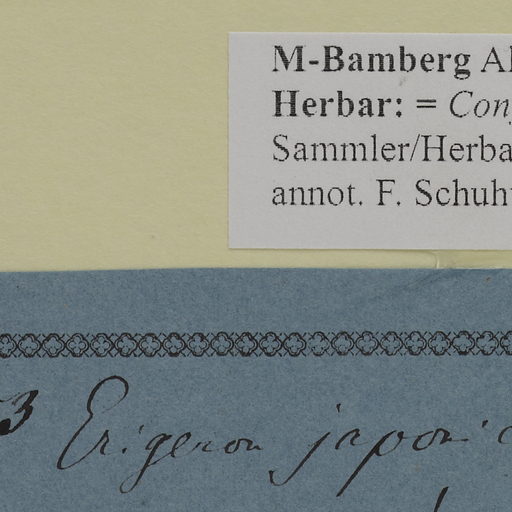 M-Bamberg Al
Herbar: = Con
Sammler/Herba
annot. F. Schuh
3 Erigeron japoni